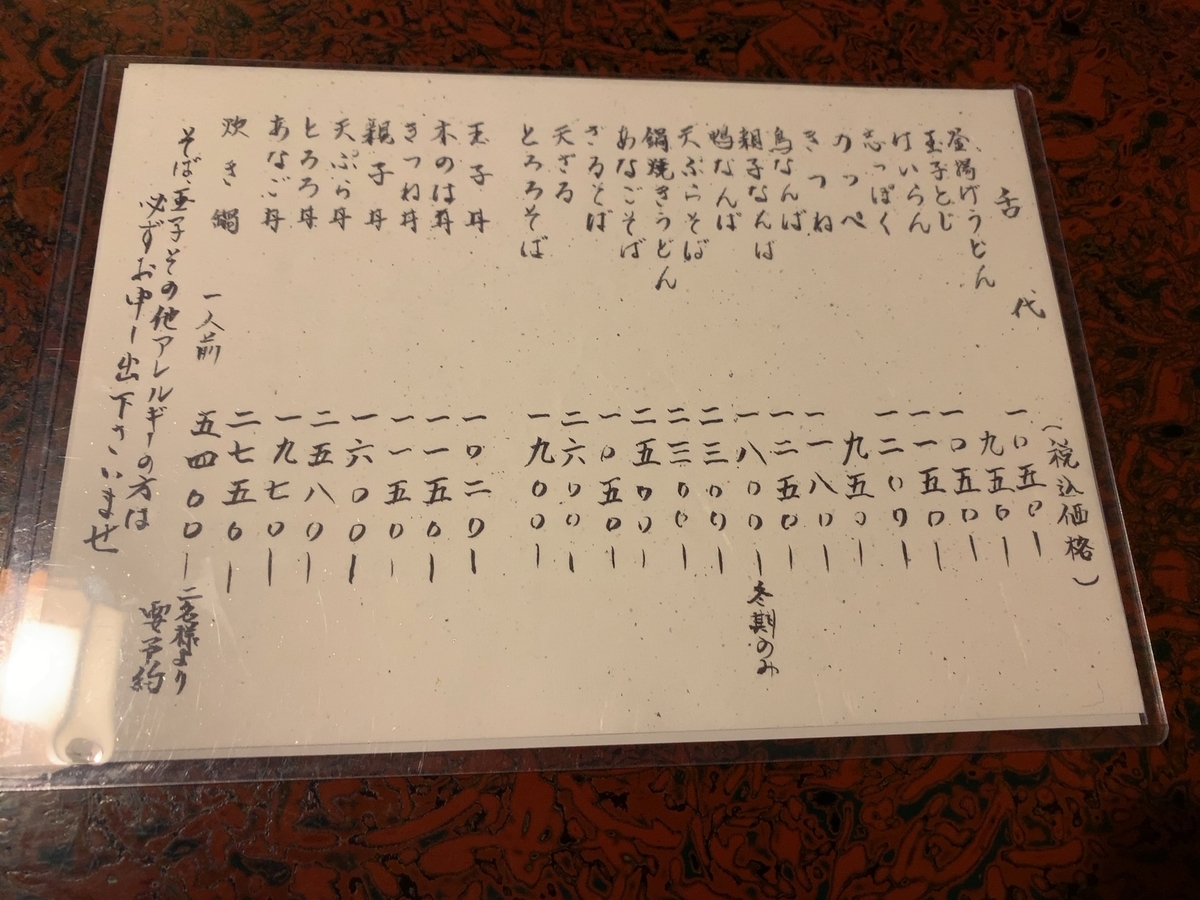 舌代
(税込価格)
釜揚げうどん 一〇五〇ー
玉子とじ 九五〇ー
けいらん 一〇五〇ー
志っぽく 一一五〇ー
のっぺ 一二〇〇ー
きつね 九五〇ー
鳥なんば 一一八〇ー
親子なんば 一二五〇ー
鴨なんば 一八〇〇ー冬期のみ
天ぷらそば 二三〇〇ー
鍋焼きうどん 二三〇〇ー
あなごそば 二五〇〇ー
ざるそば 一〇五〇ー
天ざる 二六〇〇ー
とろろそば 一九〇〇ー
玉子丼 一〇二〇ー
木のは丼 一一五〇ー
きつね丼 一一五〇ー
親子丼 一六〇〇ー
天ぷら丼 二五八〇ー
とろろ丼 一九七〇ー
あなご丼 二七五〇ー
炊き鍋 一人前 五四〇〇ー二名様より
要予約
そば、玉子その他アレルギーの方は
必ずお申し出下さいませ